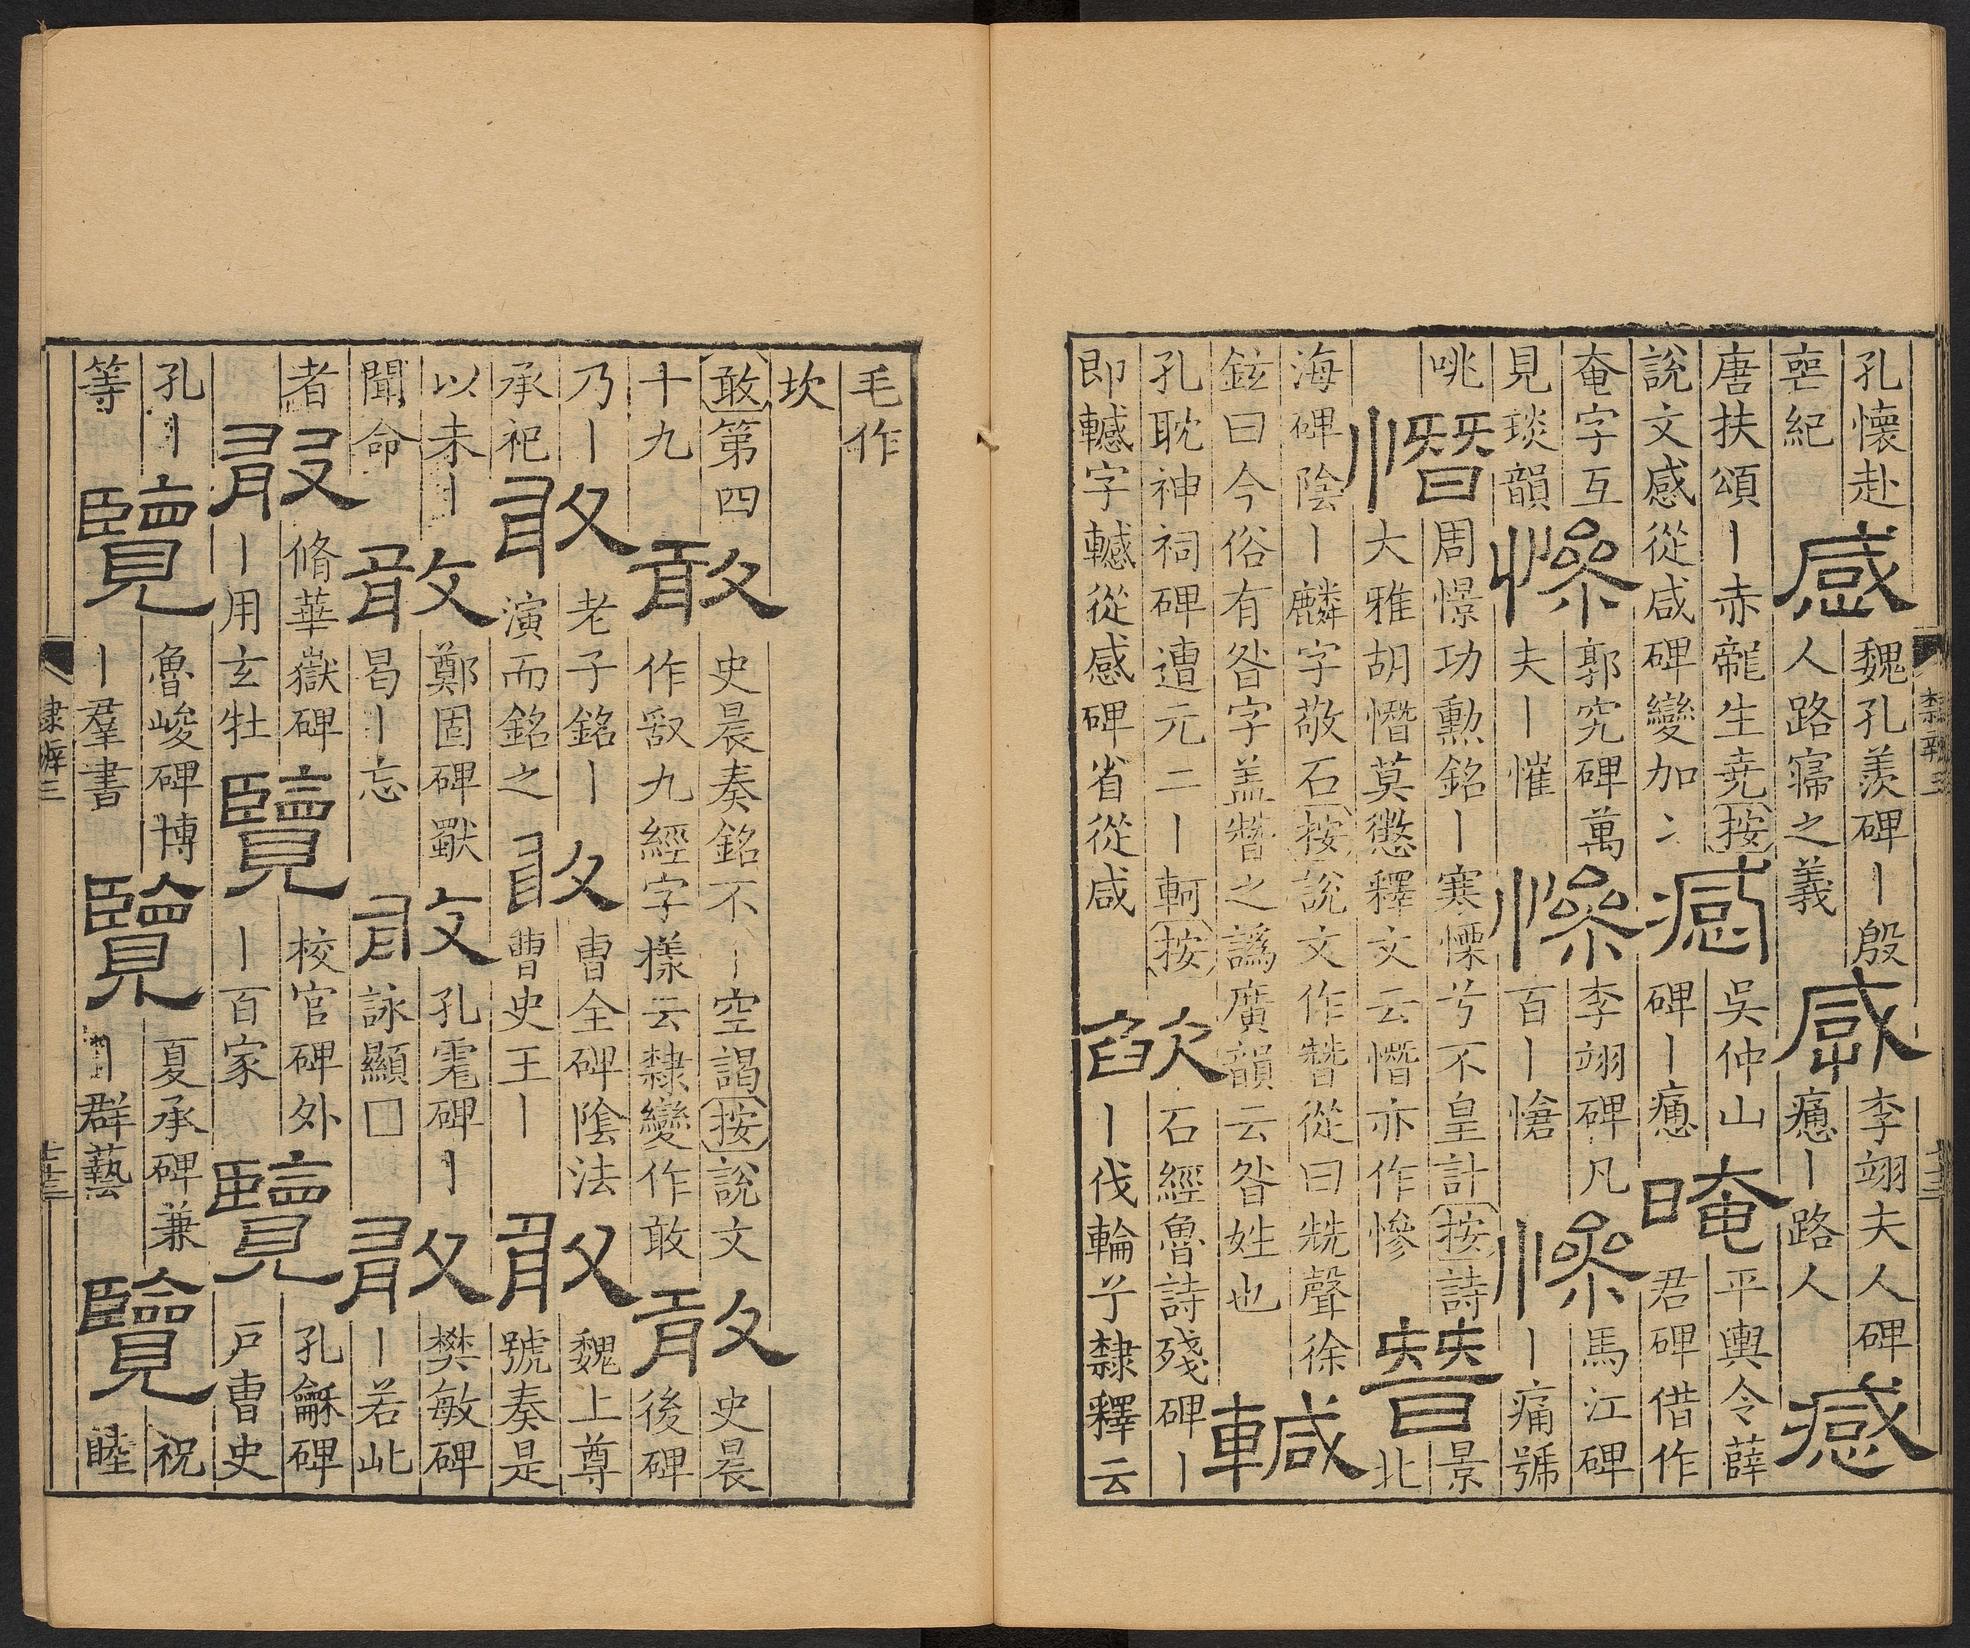 孔懷赴
喪紀
感
魏孔羨碑丨殷
人路寢之義
感
李翊夫人碑
癒丨路人
感
唐扶頌丨赤龍生堯按
説文感從咸碑變加冫
吳仲山
碑丨癒
晻
平輿令薛
君碑借作
奄字互
見琰韻
慘
郭究碑萬
夫丨慛
慘
李翊碑凡
百丨愴
慘
馬江碑
丨痛號
咷
憯
周憬功勲銘丨寒慄兮不皇計按詩
大雅胡憯莫懲釋文云憯亦作慘
朁
景
北
海碑陰丨麟字敬石按説文作朁從曰兟聲徐
鉉曰今俗有昝字盖朁之譌廣韻云昝姓也
轗
孔耽神祠碑遭元二丨軻按
即轗字轗從感碑省從咸
欿
石經魯詩殘碑丨
丨伐輪子隸釋云
隸辨三
毛作
坎
敢第四
十九
敢
史晨奏銘不丨空謁按説文
作𠭖九經字樣云隸變作敢
敢
史晨
後碑
乃丨
承祀
敢
老子銘丨
演而銘之
敢
曹全碑陰法
曹史王丨
敢
魏上尊
號奏是
以未丨
聞命
敢
鄭固碑獸
曷丨忘
敢
孔宙碑丨
詠顯□
敢
樊敏碑
丨若此
者
敢
脩華嶽碑
丨用玄牡
覽
校官碑外
丨百家
覽
孔龢碑
戶曹史
孔丨
等
覽
魯峻碑博
丨羣書
覽
夏承碑兼
丨群藝
覽
祝
睦
隸辨三